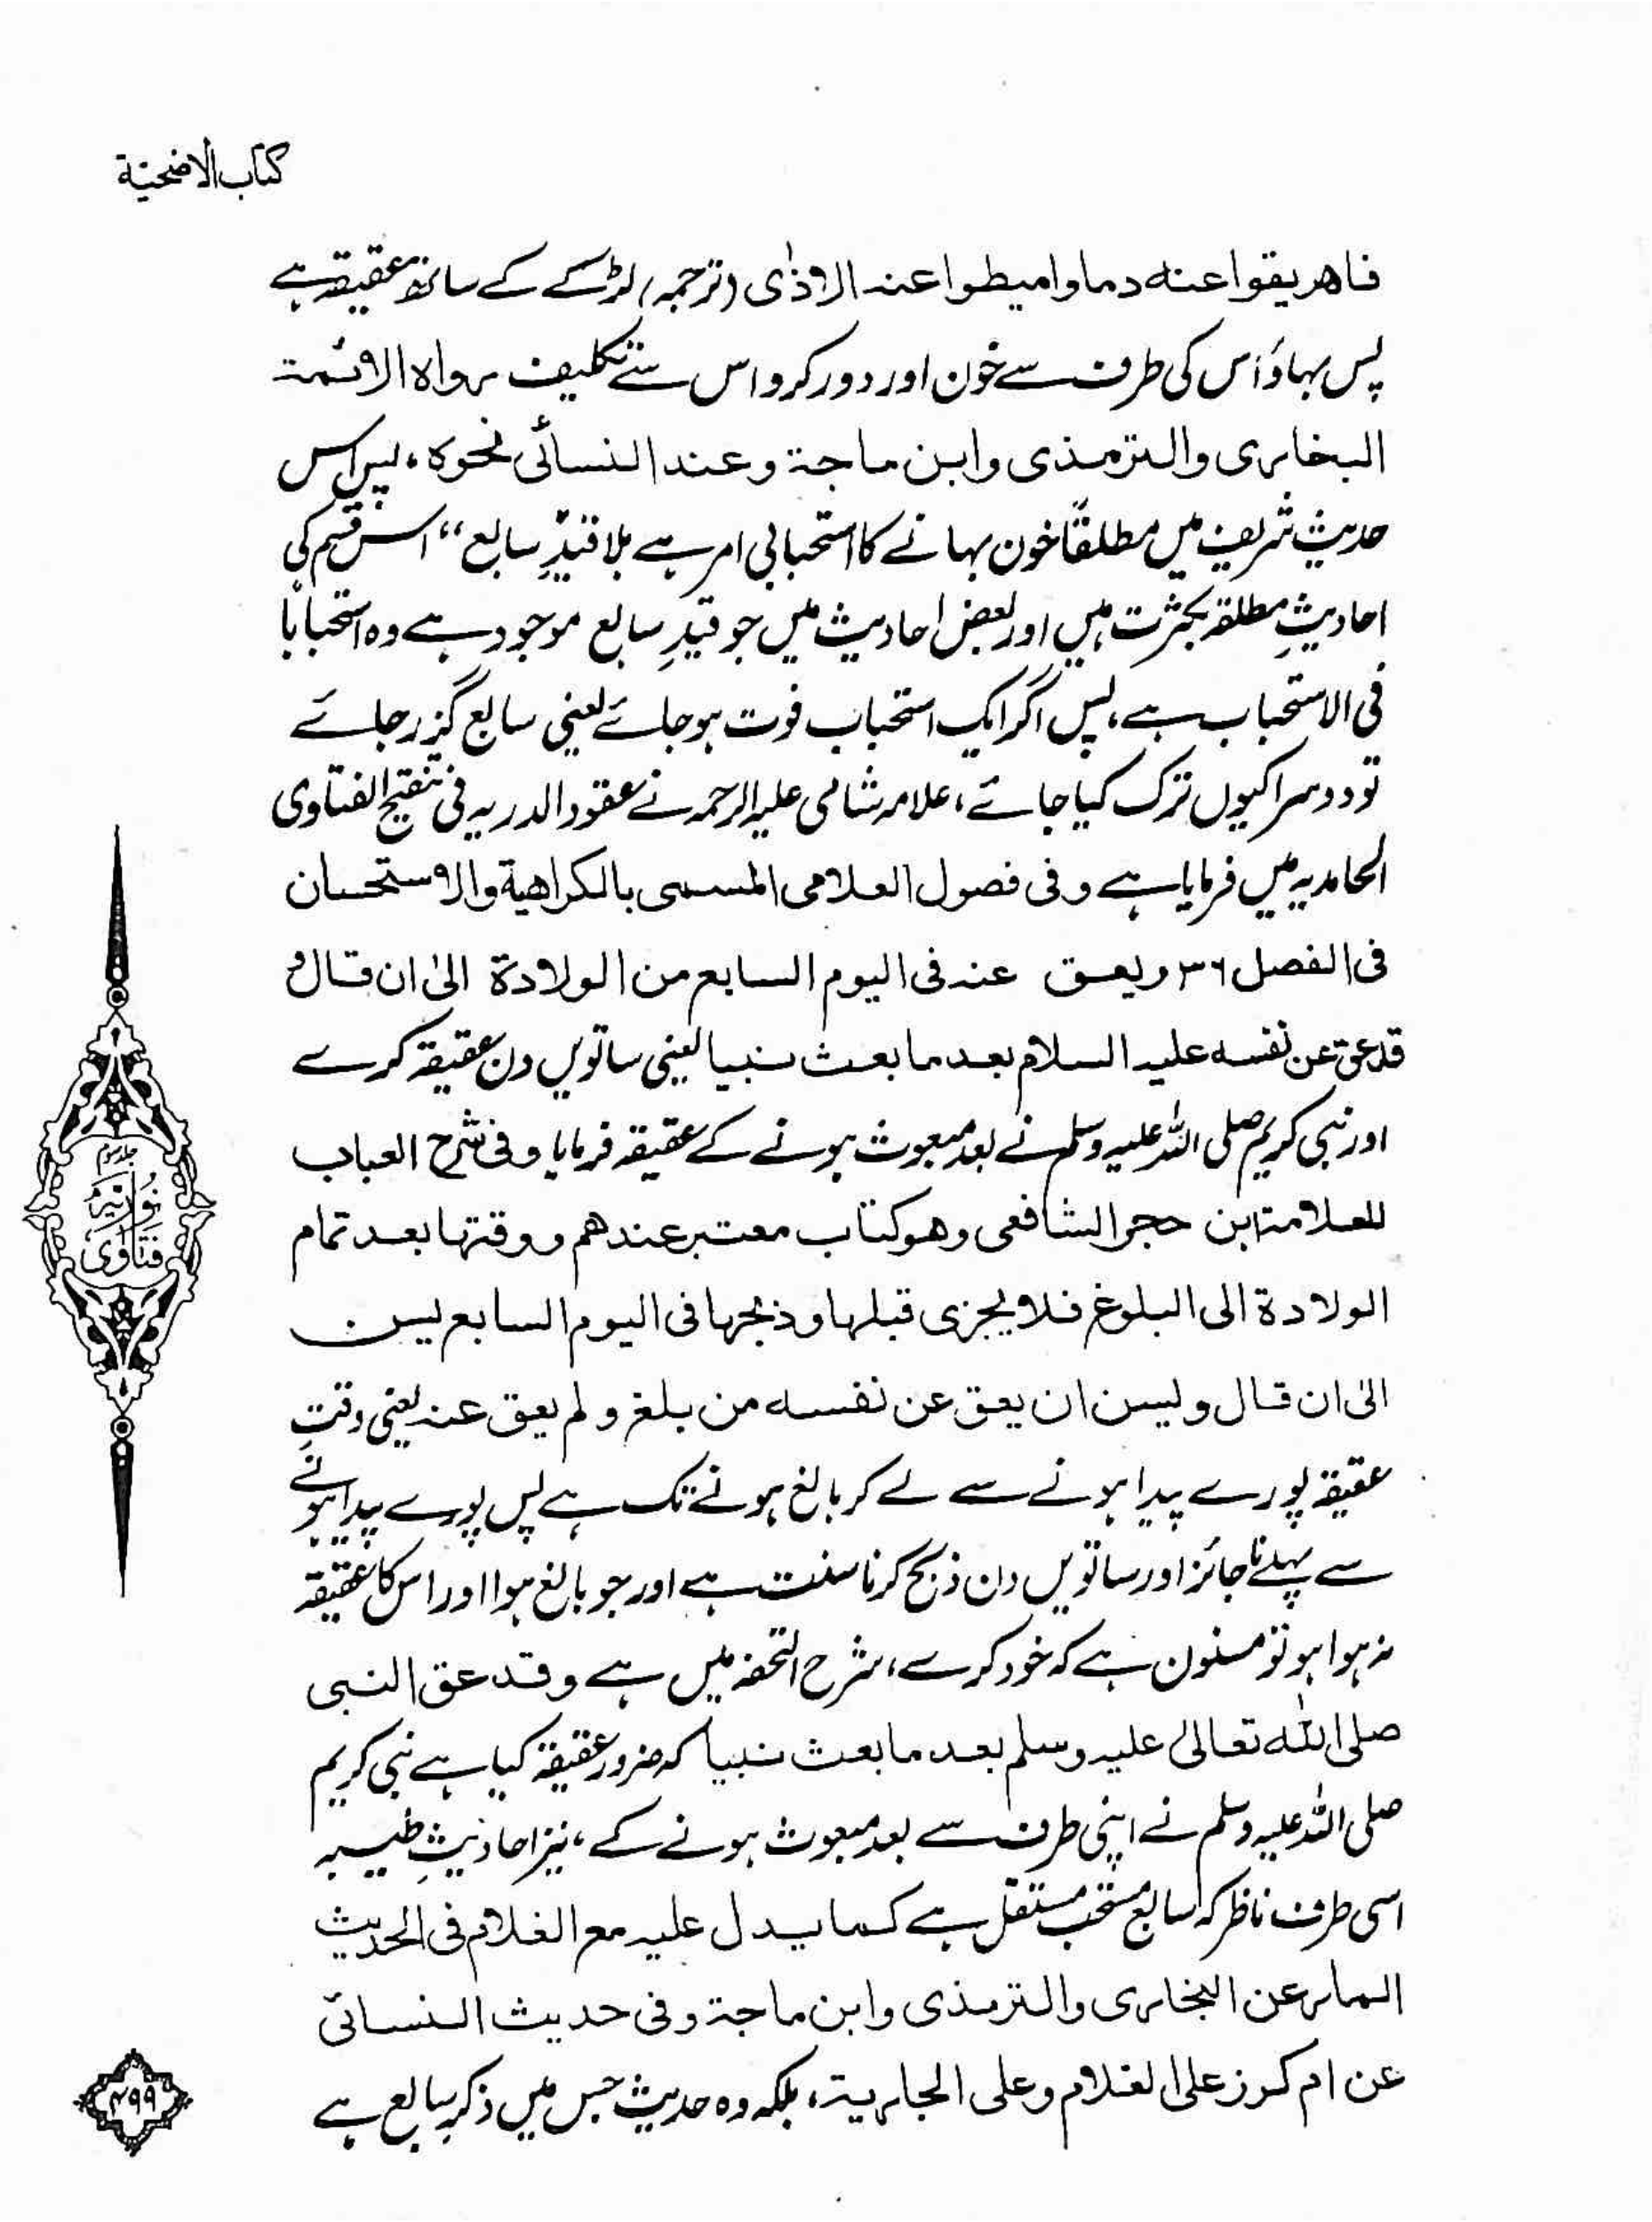 کتاب الاضحیّة
فاھریقوا عنہ دما وامیطوا عنہ الاذٰی (ترجمہ) لڑکے کے ساتھ عقیقہ ہے
پس بہاؤ اس کی طرف سے خون اور دور کرو اس سے تکلیف رواہ الائمۃ
البخاری والترمذی وابن ماجۃ وعند النسائی نحوہ، پس اس
حدیث شریف میں مطلقًا خون بہانے کا استحبابی امر ہے بلا قیدِ سابع“ اس قسم کی
احادیثِ مطلقہ بکثرت ہیں اور بعض احادیث میں جو قیدِ سابع موجود ہے وہ استحبابًا
فی الاستحباب ہے، پس اگر ایک استحباب فوت ہو جائے یعنی سابع گزر جائے
تو دوسرا کیوں ترک کیا جائے، علامہ شامی علیہ الرحمہ نے عقود الدریہ فی تنقیح الفتاوی
الحامدیہ میں فرمایا ہے وفی فصول العلامی المسمی بالکراھیۃ والاستحسان
فی الفصل ۳۶ ویعق عنہ فی الیوم السابع من الولادۃ الیٰ ان قال و
قد عق عن نفسہ علیہ السلام بعد ما بعث نبیا یعنی ساتویں دن عقیقہ کرے
اور نبی کریم صلی اللہ علیہ وسلم نے بعد مبعوث ہونے کے عقیقہ فرمایا وفی شرح العباب
للعلامۃ ابن حجر الشافعی وھو کتاب معتبر عندھم ووقتہا بعد تمام
الولادۃ الی البلوغ فلا یجزی قبلہا وذبحہا فی الیوم السابع یسن
الیٰ ان قال ولیسن ان یعق عن نفسہ من بلغ ولم یعق عنہ یعنی وقتِ
عقیقہ پورے پیدا ہونے سے لے کر بالغ ہونے تک ہے پس پورے پیدا ہونے
سے پہلے ناجائز اور ساتویں دن ذبح کرنا سنت ہے اور جو بالغ ہوا اور اس کا عقیقہ
نہ ہوا ہو تو مسنون ہے کہ خود کرے، شرح التحفہ میں ہے وقد عق النبی
صلی اللہ تعالیٰ علیہ وسلم بعد ما بعث نبیا کہ ضرور عقیقہ کیا ہے نبی کریم
صلی اللہ علیہ وسلم نے اپنی طرف سے بعد مبعوث ہونے کے، نیز احادیثِ طیبہ
اسی طرف ناظر کہ سابع مستحب مستقل ہے کما یدل علیہ مع الغلام فی الحدیث
المار عن البخاری والترمذی وابن ماجۃ وفی حدیث النسائی
عن ام کرز علی الغلام وعلی الجاریۃ، بلکہ وہ حدیث جس میں ذکرِ سابع ہے
جلد سوم
نُوْرِیَہ
فَتَاوٰی
۴۹۹